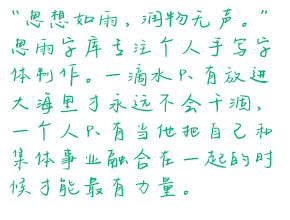 “思想如雨，润物无声。”
思雨字库专注个人手写字
体制作。一滴水只有放进
大海里才永远不会干涸，
一个人只有当他把自己和
集体事业融合在一起的时
候才能最有力量。